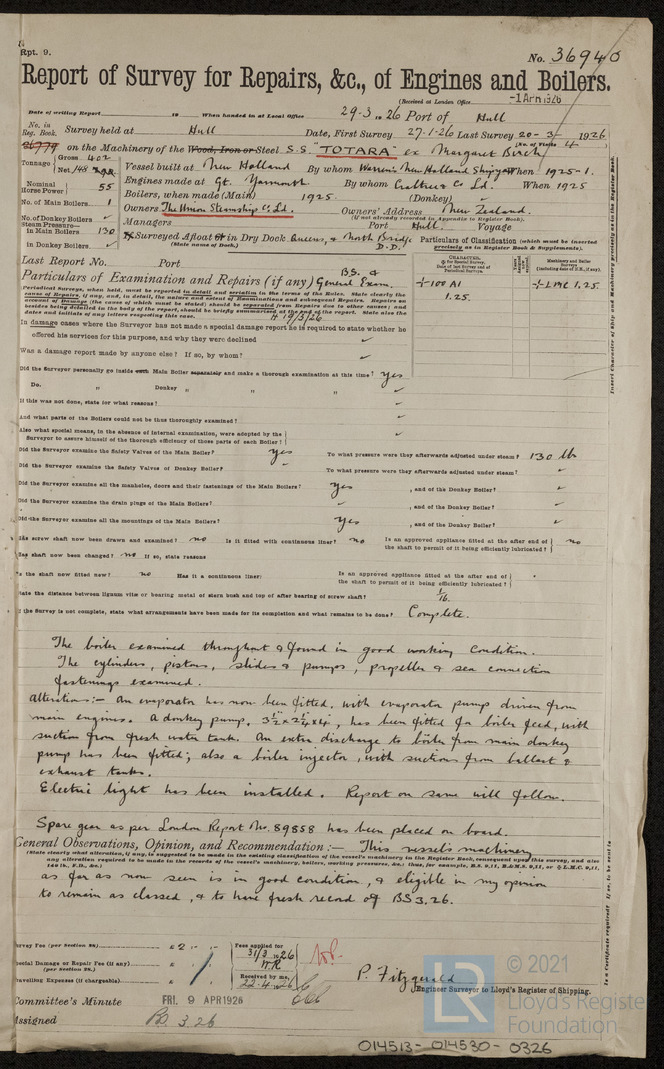 Rpt. 9.
No. 36940
Report of Survey for Repairs, &c., of Engines and Boilers.
(Received at London Office -1 Apr 1926
Date of writing Report 19 When handed in at Local Office 29-3-1926 Port of Hull
No. in Reg. Book. Survey held at Hull Date, First Survey 27-1-26 Last Survey 20-3-1926
(No. of Visits 4)
on the Machinery of the Wood, Iron or Steel S.S. "TOTARA" ex Margaret Birch
Tonnage Gross 402 Net 148
Vessel built at New Holland By whom Warrens New Holland Shipyard When 1925-1.
Nominal Horse Power 55
Engines made at Gt. Yarmouth By whom Crabtree & Co Ld. When 1925
No. of Main Boilers 1
Boilers, when made (Main) 1925. (Donkey) ✓
No. of Donkey Boilers ✓
Owners The Union Steamship Co. Ld. Owners' Address New Zealand.
(If not already recorded in Appendix to Register Book).
Steam Pressure—
in Main Boilers 130
Managers Port Hull. Voyage
in Donkey Boilers ✓
If Surveyed Afloat or in Dry Dock Queens, & North Bridge D.D.
(State name of Dock.)
Particulars of Classification (which must be inserted precisely as in Register Book & Supplements).
Last Report No. Port
Particulars of Examination and Repairs (if any) B.S. & General Exam.
+100 A1
1.25.
+LMC 1.25.
19/3/26
In damage cases where the Surveyor has not made a special damage report he is required to state whether he
offered his services for this purpose, and why they were declined ✓
Was a damage report made by anyone else? If so, by whom? ✓
Did the Surveyor personally go inside each Main Boiler separately and make a thorough examination at this time? Yes
Do. " Donkey " " " ✓
If this was not done, state for what reasons? ✓
And what parts of the Boilers could not be thoroughly examined? ✓
Also what special means, in the absence of internal examination, were adopted by the
Surveyor to assure himself of the thorough efficiency of those parts of each Boiler? ✓
Did the Surveyor examine the Safety Valves of the Main Boiler? yes To what pressure were they afterwards adjusted under steam? 130 lb
Did the Surveyor examine the Safety Valves of Donkey Boiler? ✓ To what pressure were they afterwards adjusted under steam? ✓
Did the Surveyor examine all the manholes, doors and their fastenings of the Main Boilers? Yes , and of the Donkey Boiler? ✓
Did the Surveyor examine the drain plugs of the Main Boilers? ✓ , and of the Donkey Boiler? ✓
Did the Surveyor examine all the mountings of the Main Boilers? Yes , and of the Donkey Boiler? ✓
Has screw shaft now been drawn and examined? no Is it fitted with continuous liner? no Is an approved appliance fitted at the after end of the shaft to permit of it being efficiently lubricated? no
Has shaft now been changed? no If so, state reasons
Is the shaft now fitted new? no Has it a continuous liner? Is an approved appliance fitted at the after end of the shaft to permit of it being efficiently lubricated?
State the distance between lignum vitæ or bearing metal of stern bush and top of after bearing of screw shaft? 1/16.
If the Survey is not complete, state what arrangements have been made for its completion and what remains to be done? Complete.
The boiler examined throughout & found in good working condition.
The cylinders, pistons, slides & pumps, propeller & sea connection
fastenings examined.
Alterations:— An evaporator has now been fitted, with evaporator pump driven from
main engines. A donkey pump, 3½ x 2¼ x 4, has been fitted for boiler feed, with
suction from fresh water tank. An extra discharge to boiler from main donkey
pump has been fitted; also a boiler injector, with suctions from ballast &
exhaust tanks.
Electric light has been installed. Report on same will follow.
Spare gear as per London Report No. 89858 has been placed on board.
General Observations, Opinion, and Recommendation :— This vessel's machinery
as far as now seen is in good condition, & eligible in my opinion
to remain as classed, & to have fresh record of BS 3.26.
Survey Fee (per Section 28) £2 : :
Fees applied for 31/3 1926
W.R.
Special Damage or Repair Fee (if any) (per Section 28.) £
Received by me, 22-4-1926
Travelling Expenses (if chargeable) £
P. Fitzgerald
Engineer Surveyor to Lloyd's Register of Shipping.
Committee's Minute FRI. 9 APR 1926
Assigned BS 3.26
© 2021
LR
Lloyd's Register
Foundation
014513-014530-0326